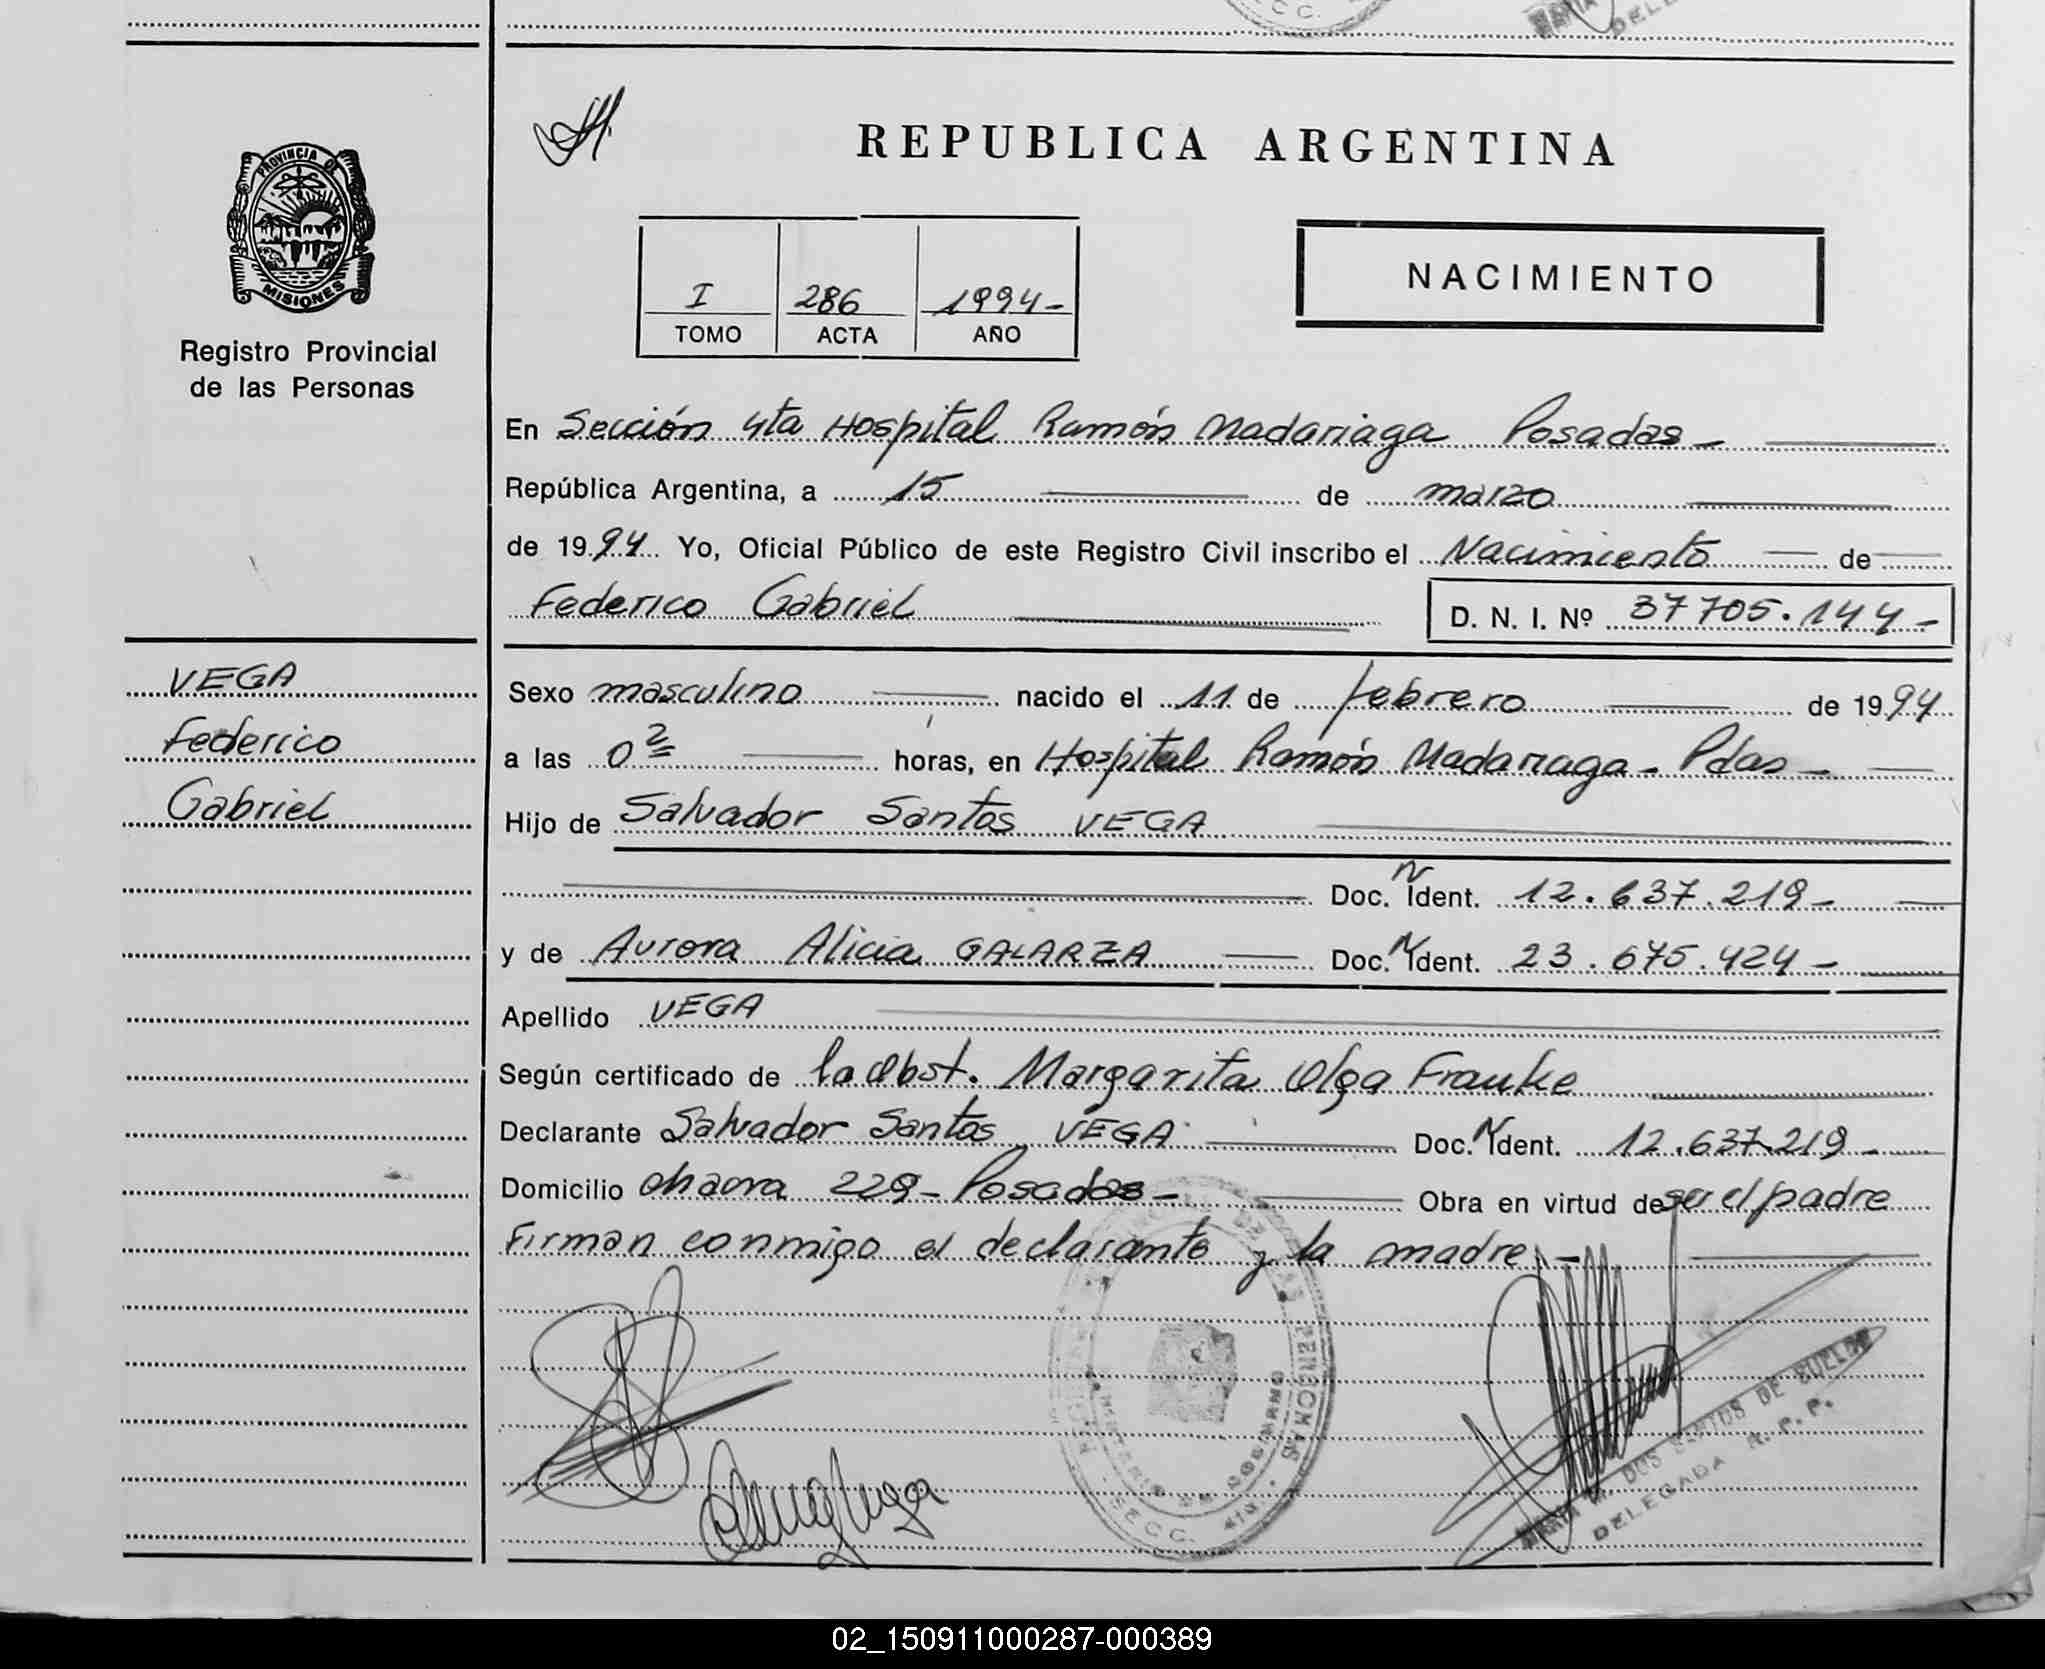 REPUBLICA ARGENTINA
PROVINCIA DE
MISIONES
Registro Provincial
de las Personas
I 286 1994-
TOMO ACTA AÑO
NACIMIENTO
En Sección 4ta Hospital Ramón Madariaga Posadas -
República Argentina, a 15 de marzo
de 1994 Yo, Oficial Público de este Registro Civil inscribo el Nacimiento de
Federico Gabriel D. N. I. Nº 37705.144-
VEGA
Federico
Gabriel
Sexo masculino nacido el 11 de febrero de 1994
a las 0 horas, en Hospital Ramón Madariaga - Pdas -
Hijo de Salvador Santos VEGA
Doc. N Ident. 12.637.219-
y de Aurora Alicia GALARZA Doc. N Ident. 23.675.424-
Apellido VEGA
Según certificado de la Obst. Margarita Olga Franke
Declarante Salvador Santos VEGA Doc. N Ident. 12.637.219-
Domicilio chacra 229- Posadas- Obra en virtud de ser el padre
Firman conmigo el declarante y la madre -
DE LAS PERSONAS
MINISTERIO DE GOBIERNO
SECC. 4ta.
DOS SANTOS DE
DELEGADA R. P. P.
02_150911000287-000389